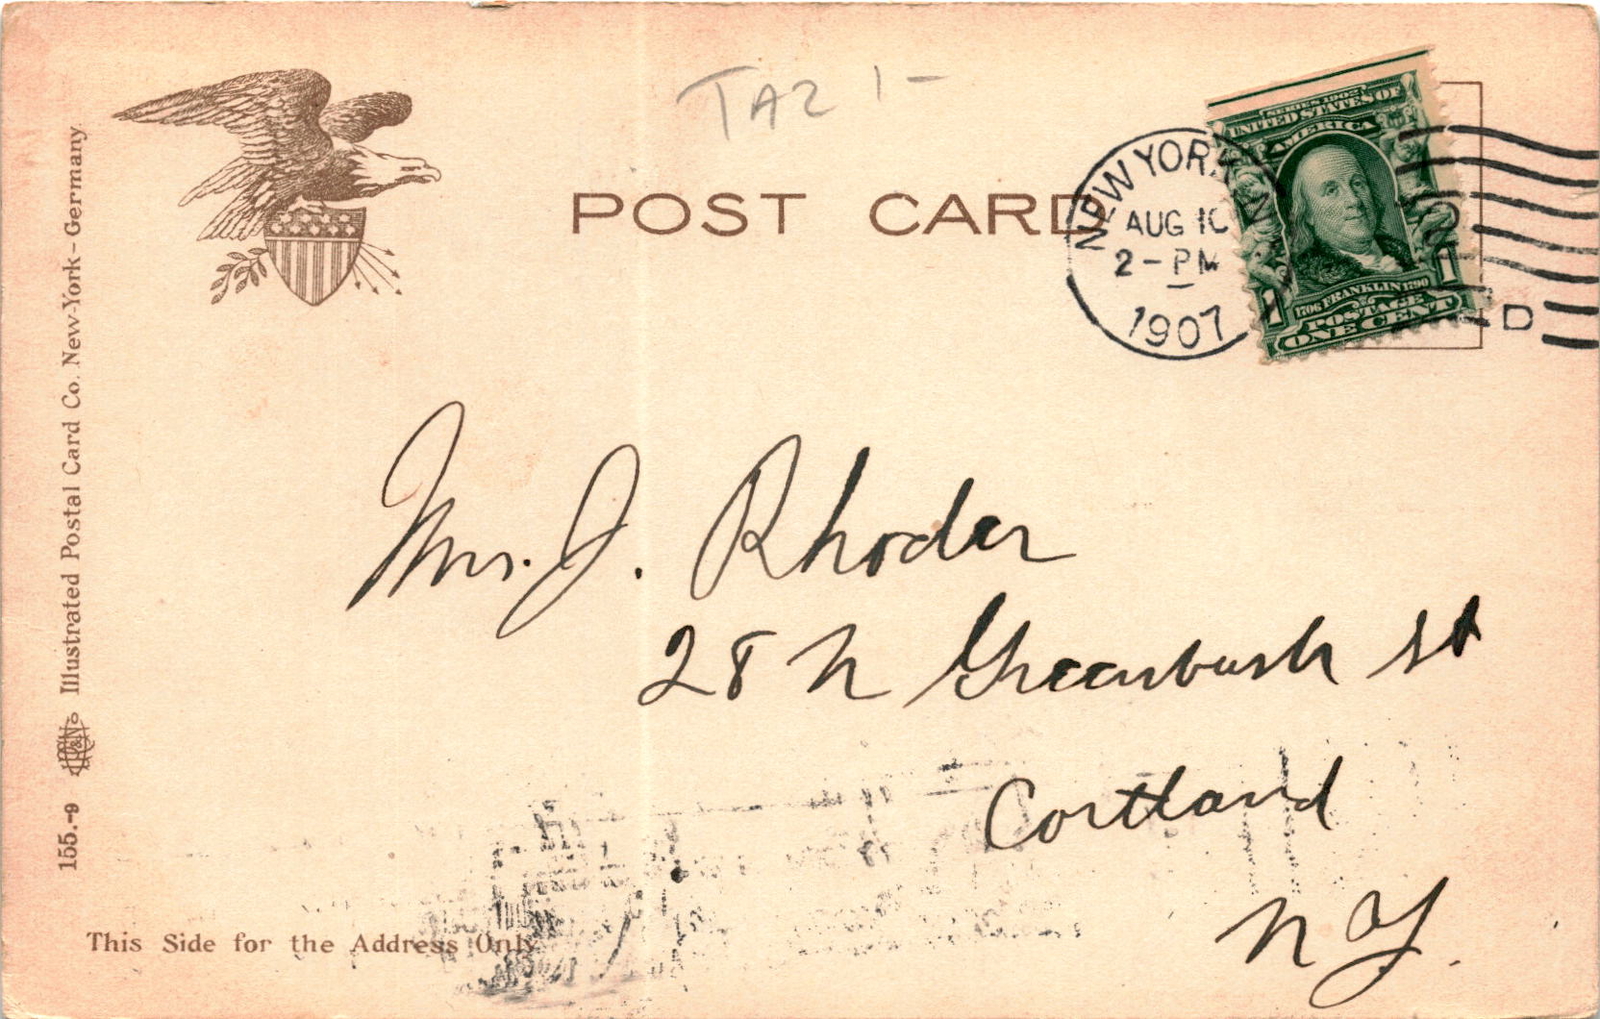 TAZ 1-
POST CARD
NEW YORK, N
AUG 10
2-PM
1907
D
SERIES 1902
UNITED STATES OF
AMERICA
1706 FRANKLIN 1790
1 1
POSTAGE
ONE CENT
Illustrated Postal Card Co. New-York-Germany.
155.-9
Mrs. J. Rhoder
28 N Greenbush St
Cortland
N Y.
This Side for the Address Only.